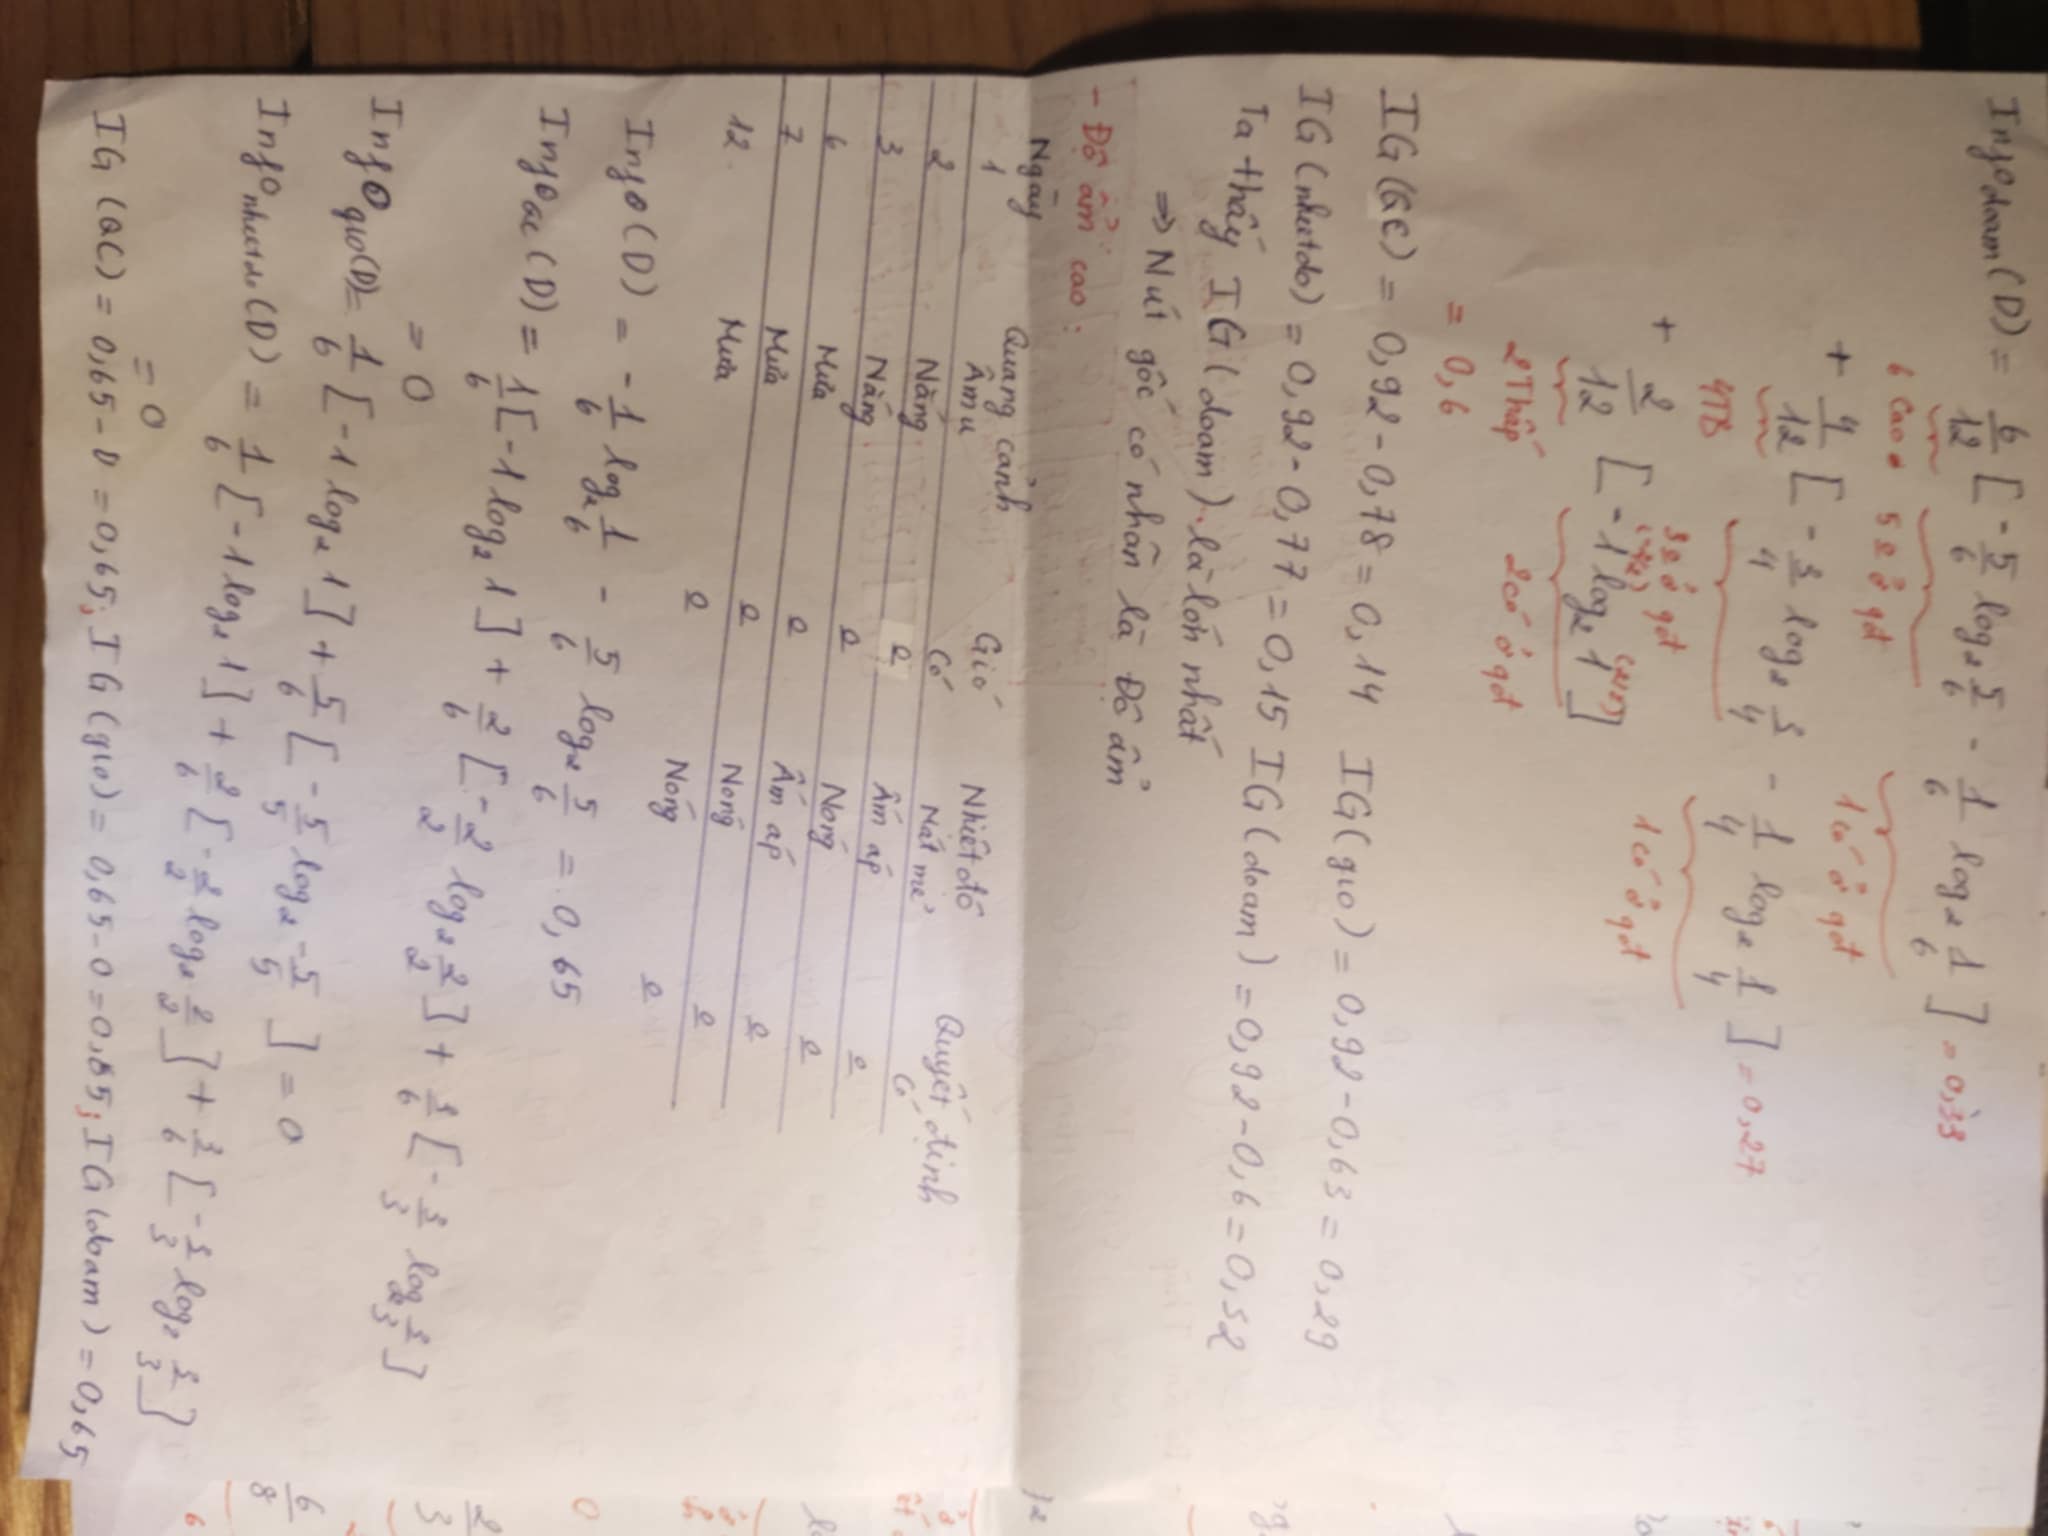 Info doam (D) = 6/12 [ - 5/6 log₂ 5/6 - 1/6 log₂ 1/6 ] = 0,33
6 Cao 5 0 ở gót 1 có ở gót
+ 4/12 [ - 3/4 log₂ 3/4 - 1/4 log₂ 1/4 ] = 0,27
4TB 3 0 ở gót 1 có ở gót
+ 2/12 [ - 1 log₂ 1 ]
2 Thấp 2 có ở gót
= 0,6
IG (QC) = 0,92 - 0,78 = 0,14 IG (gio) = 0,92 - 0,63 = 0,29
IG (nhietdo) = 0,92 - 0,77 = 0,15 IG (doam) = 0,92 - 0,6 = 0,32
Ta thấy IG (doam) là lớn nhất
=> Nút gốc có nhãn là Độ ẩm
- Độ ẩm cao :
Ngày Quang cảnh Gió Nhiệt độ Quyết định
1 Âm u Có Mát mẻ Có
2 Nắng 0 Ấm áp 0
3 Nắng 0 Nóng 0
6 Mưa 0 Ấm áp 0
7 Mưa 0 Nóng 0
12 Mưa 0 Nóng 0
Info (D) = - 1/6 log₂ 1/6 - 5/6 log₂ 5/6 = 0,65
Info QC (D) = 1/6 [ - 1 log₂ 1 ] + 2/6 [ - 2/2 log₂ 2/2 ] + 3/6 [ - 3/3 log₂ 3/3 ]
= 0
Info gio (D) = 1/6 [ - 1 log₂ 1 ] + 5/6 [ - 5/5 log₂ - 5/5 ] = 0
Info nhietdo (D) = 1/6 [ - 1 log₂ 1 ] + 2/6 [ - 2/2 log₂ 2/2 ] + 3/6 [ - 3/3 log₂ 3/3 ]
= 0
IG (QC) = 0,65 - 0 = 0,65 ; IG (gio) = 0,65 - 0 = 0,65 ; IG (doam) = 0,65